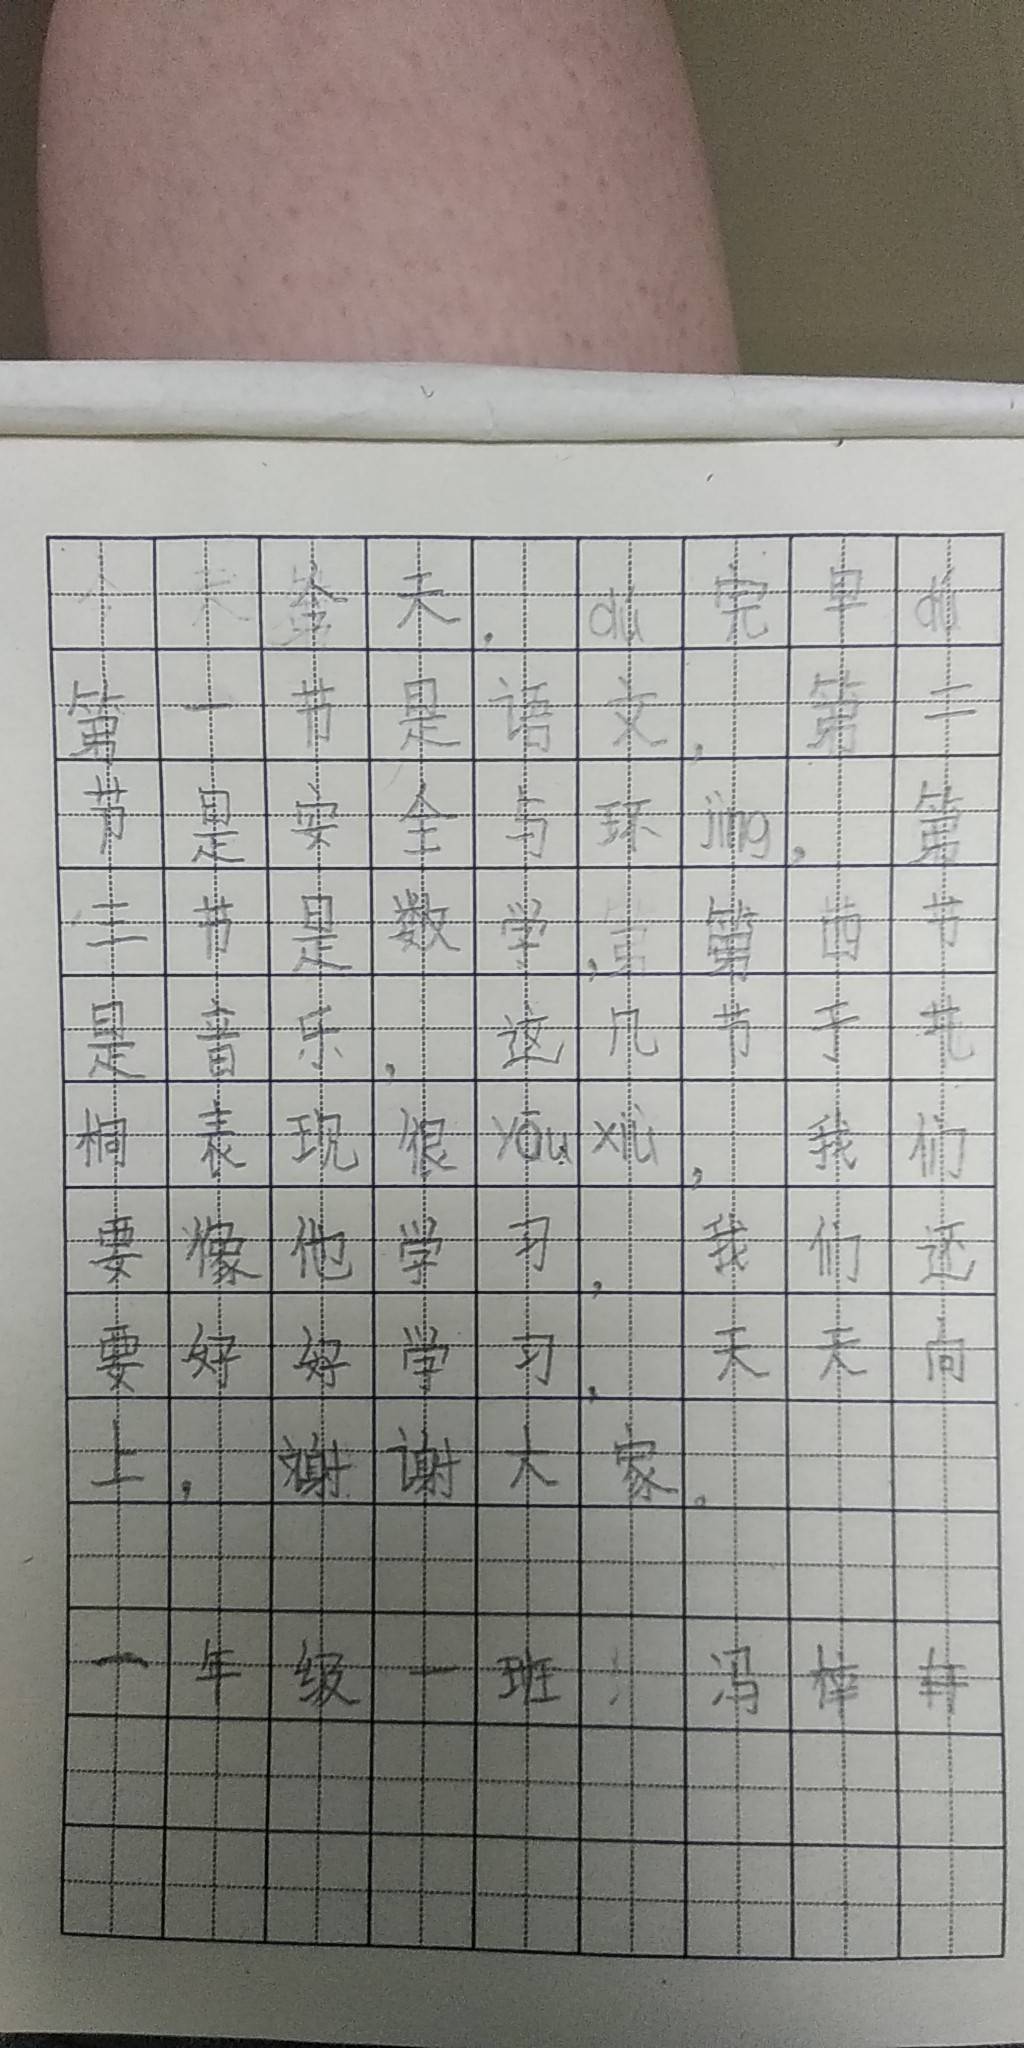 今天，dú完早dú
第一节是语文，第二
节是安全与环jing，第
三节是数学，第四节
是音乐，这几节于
桐表现很yōuxiù，我们
要像他学习，我们还
要好好学习，天天向
上，谢谢大家。
一年级一班冯梓